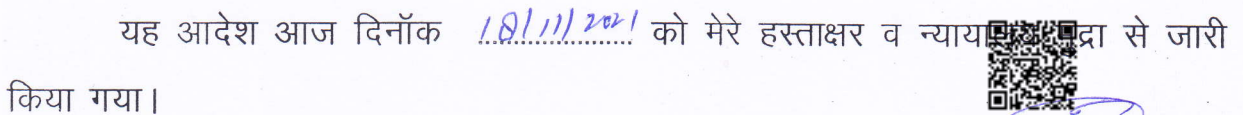 यह आदेश आज दिनॉक 18/11/2021 को मेरे हस्ताक्षर व से जारी
किया गया।